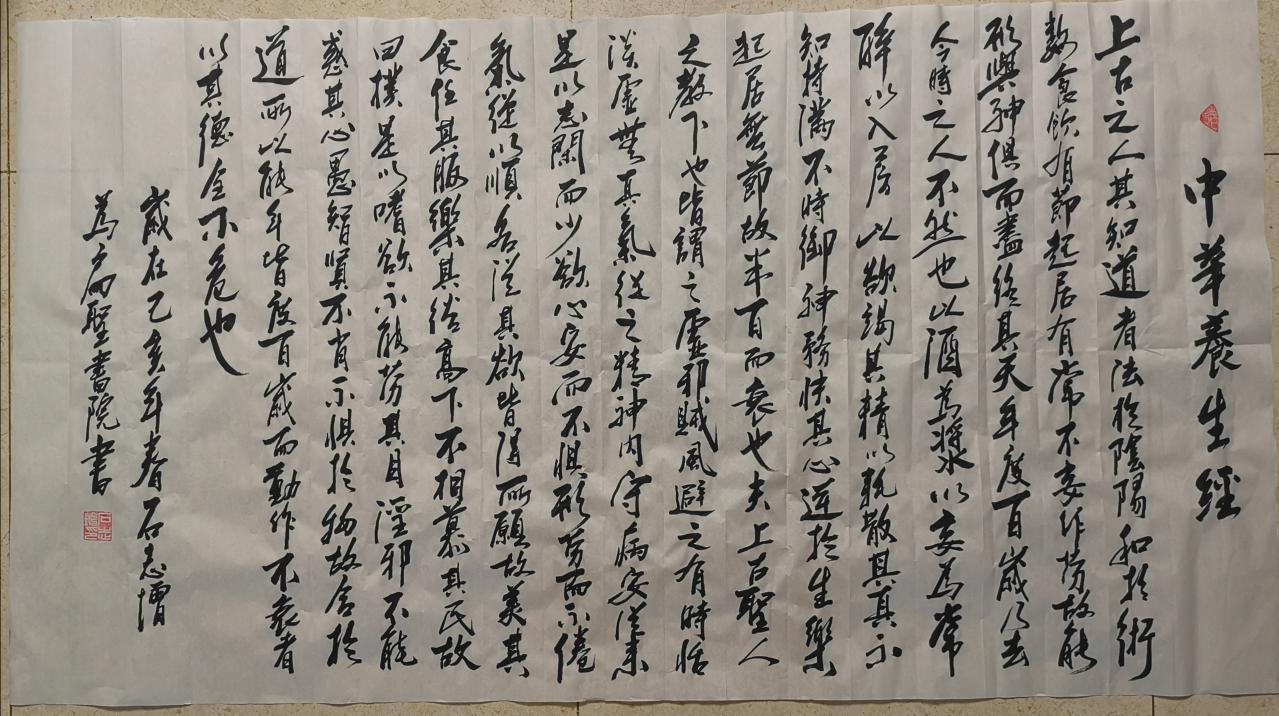 中華養生經
上古之人其知道者法於陰陽和於術
數食飲有節起居有常不妄作勞故能
形與神俱而盡終其天年度百歲乃去
今時之人不然也以酒為漿以妄為常
醉以入房以欲竭其精以耗散其真不
知持滿不時御神務快其心逆於生樂
起居無節故半百而衰也夫上古聖人
之教下也皆謂之虛邪賊風避之有時恬
淡虛無真氣從之精神內守病安從來
是以志閑而少欲心安而不懼形勞而不倦
氣從以順各從其欲皆得所願故美其
食任其服樂其俗高下不相慕其民故
曰樸是以嗜欲不能勞其目淫邪不能
惑其心愚智賢不肖不懼於物故合於
道所以能年皆度百歲而動作不衰者
以其德全不危也
歲在己亥年春石志
為 聖書院書